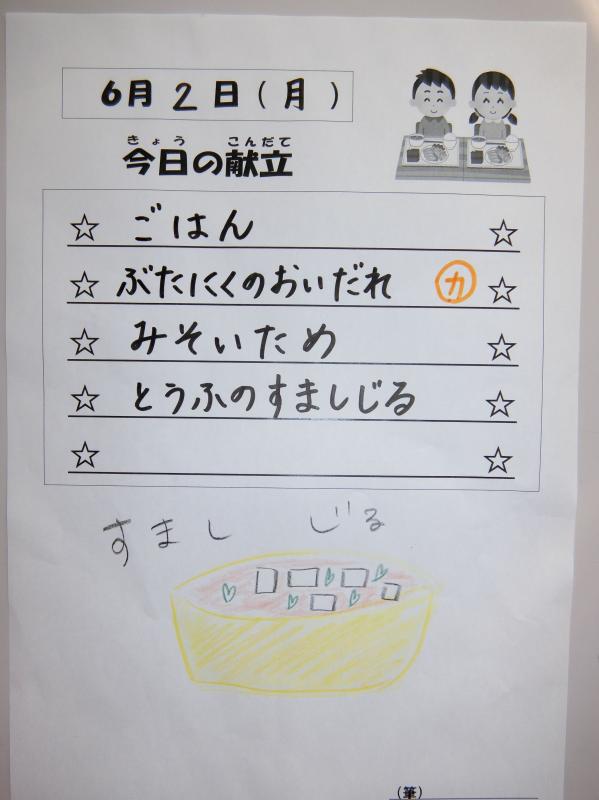 6月2日(月)
きょう こんだて
今日の献立
☆ ごはん ☆
☆ ぶたにくのおいだれ カ ☆
☆ みそいため ☆
☆ とうふのすましじる ☆
☆ ☆
すましじる
(筆)